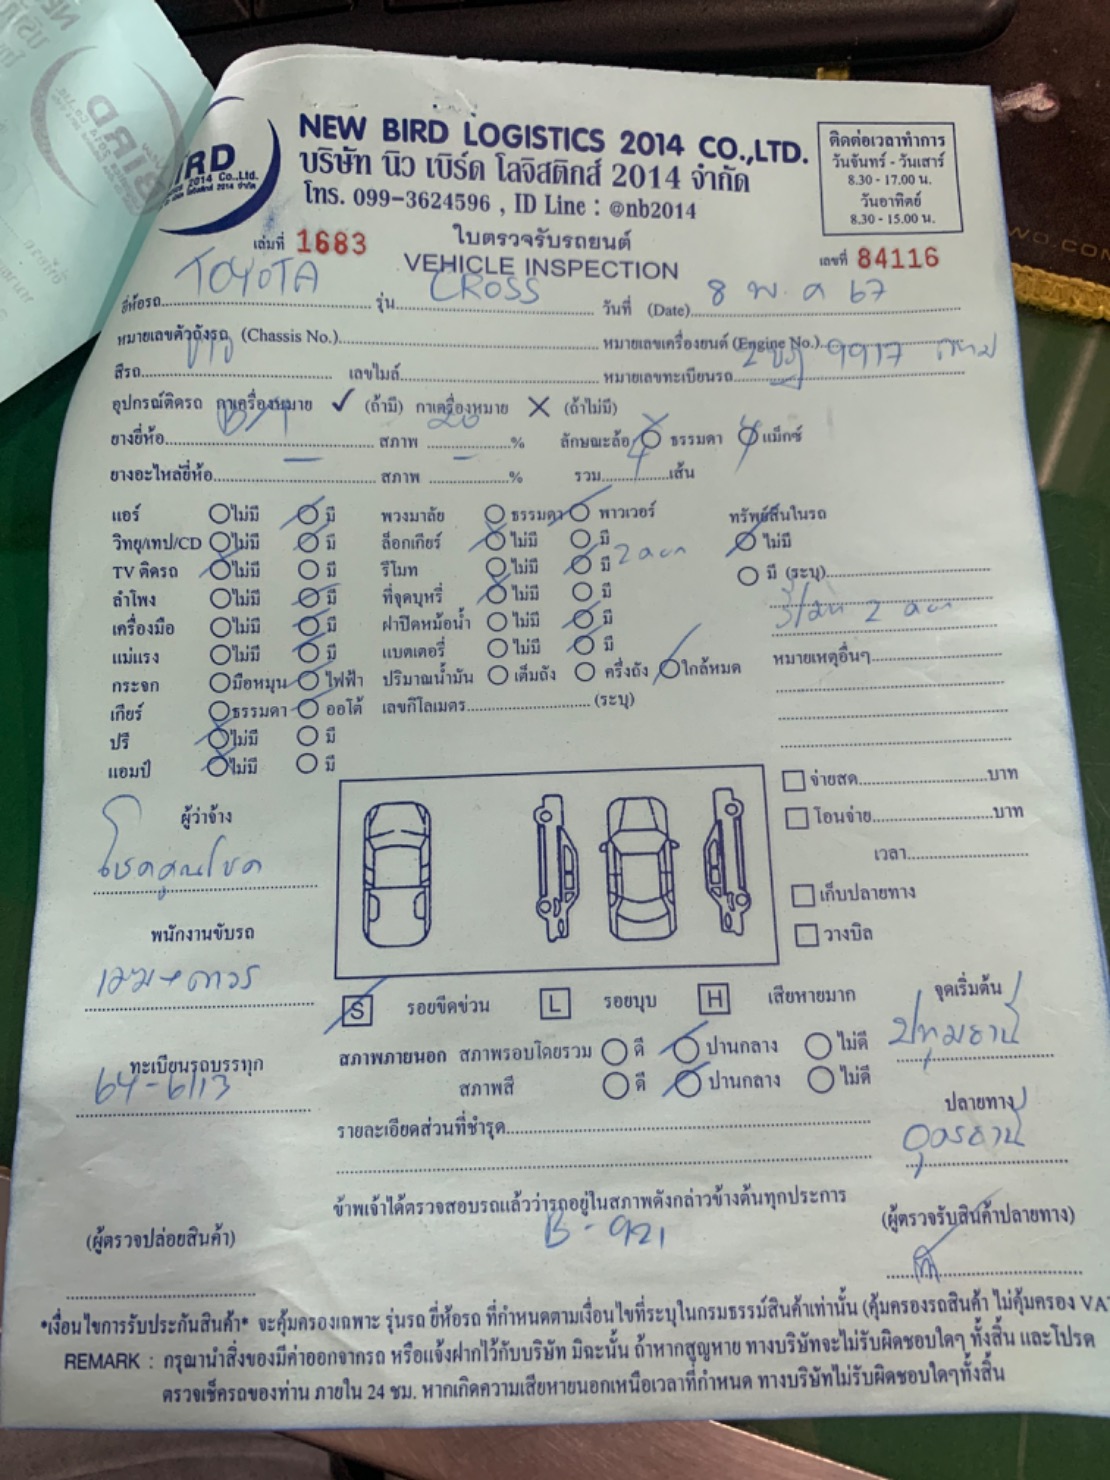 NEW BIRD LOGISTICS 2014 CO.,LTD.
บริษัท นิว เบิร์ด โลจิสติกส์ 2014 จำกัด
โทร. 099-3624596 , ID Line : @nb2014
ติดต่อเวลาทำการ
วันจันทร์ - วันเสาร์
8.30 - 17.00 น.
วันอาทิตย์
8.30 - 15.00 น.
เล่มที่ 1683
ใบตรวจรับรถยนต์
VEHICLE INSPECTION
เลขที่ 84116
ยี่ห้อรถ TOYOTA รุ่น CROSS วันที่ (Date) 8 พ.ค 67
หมายเลขตัวถังรถ (Chassis No.) หมายเลขเครื่องยนต์ (Engine No.)
สีรถ เลขไมล์ หมายเลขทะเบียนรถ 9917 กทม
อุปกรณ์ติดรถ กาเครื่องหมาย ✓ (ถ้ามี) กาเครื่องหมาย ✕ (ถ้าไม่มี)
ยางยี่ห้อ สภาพ % ลักษณะล้อ ธรรมดา แม็กซ์
ยางอะไหล่ยี่ห้อ - สภาพ - % รวม 4 เส้น
แอร์ ไม่มี มี พวงมาลัย ธรรมดา พาวเวอร์ ทรัพย์สินในรถ
วิทยุ/เทป/CD ไม่มี มี ล็อกเกียร์ ไม่มี มี ไม่มี
TV ติดรถ ไม่มี มี รีโมท ไม่มี มี 2 ดอก มี (ระบุ)
ลำโพง ไม่มี มี ที่จุดบุหรี่ ไม่มี มี รีโมท 2 ดอก
เครื่องมือ ไม่มี มี ฝาปิดหม้อน้ำ ไม่มี มี
แม่แรง ไม่มี มี แบตเตอรี่ ไม่มี มี หมายเหตุอื่นๆ
กระจก มือหมุน ไฟฟ้า ปริมาณน้ำมัน เต็มถัง ครึ่งถัง ใกล้หมด
เกียร์ ธรรมดา ออโต้ เลขกิโลเมตร (ระบุ)
ปรี ไม่มี มี
แอมป์ ไม่มี มี
จ่ายสด บาท
โอนจ่าย บาท
เวลา
เก็บปลายทาง
วางบิล
ผู้ว่าจ้าง
โชคคูณโชค
พนักงานขับรถ
ทะเบียนรถบรรทุก
64-6113
S รอยขีดข่วน L รอยบุบ H เสียหายมาก
จุดเริ่มต้น
ปทุมธานี
สภาพภายนอก สภาพรอบโดยรวม ดี ปานกลาง ไม่ดี
สภาพสี ดี ปานกลาง ไม่ดี
ปลายทาง
อุดรธานี
รายละเอียดส่วนที่ชำรุด
ข้าพเจ้าได้ตรวจสอบรถแล้วว่ารถอยู่ในสภาพดังกล่าวข้างต้นทุกประการ
B-921
(ผู้ตรวจปล่อยสินค้า)
(ผู้ตรวจรับสินค้าปลายทาง)
*เงื่อนไขการรับประกันสินค้า* จะคุ้มครองเฉพาะ รุ่นรถ ยี่ห้อรถ ที่กำหนดตามเงื่อนไขที่ระบุในกรมธรรม์สินค้าเท่านั้น (คุ้มครองรถสินค้า ไม่คุ้มครอง VA
REMARK : กรุณานำสิ่งของมีค่าออกจากรถ หรือแจ้งฝากไว้กับบริษัท มิฉะนั้น ถ้าหากสูญหาย ทางบริษัทจะไม่รับผิดชอบใดๆ ทั้งสิ้น และโปรด
ตรวจเช็ครถของท่าน ภายใน 24 ชม. หากเกิดความเสียหายนอกเหนือเวลาที่กำหนด ทางบริษัทไม่รับผิดชอบใดๆทั้งสิ้น